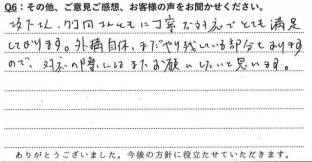 Q6：その他、ご意見ご感想、お客様の声をお聞かせください。
さん、さんともに丁寧な対応でとても満足
しております。外構自体、まだやり残している部分もあります
ので、対応の際にはまたお願いしたいと思います。
ありがとうございました。今後の方針に役立たせていただきます。